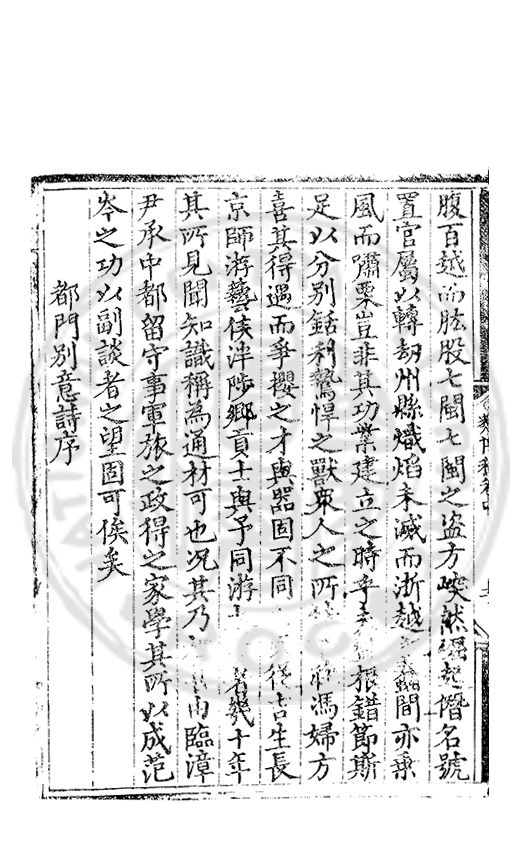 腹百越而肱股七閩七閩之盜方喫然崛起僭名號
置官屬以轉劫州縣熾焰未滅而浙越間亦乗
風而嘯聚豈非其功業建立之時乎根錯節斯
足以分别銛利鷙悍之獸衆人之所馮婦方
喜其得遇而爭攖之才與器固不同生長
京師游藝俟泮陟鄉貢士與予同游名幾十年
其所見聞知識稱為通材可也况其乃臨漳
尹承中都留守事軍旅之政得之家學其所以成范
岑之功以副談者之望固可俟矣
都門别意詩序